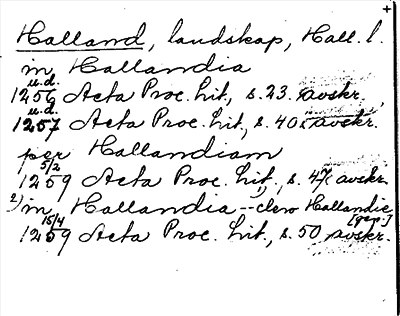 +
Halland, landskap, Hall. l.
in Hallandia
u.d.
1256 Acta Proc. lit., s. 23. avskr.
u.d.
1257 Acta Proc. lit., s. 40. avskr.
per Hallandiam
5/2
1259 Acta Proc. lit., s. 47. avskr.
2) in Hallandia -- clero Hallandie
15/4 [gen.]
1259 Acta Proc. lit., s. 50 avskr.